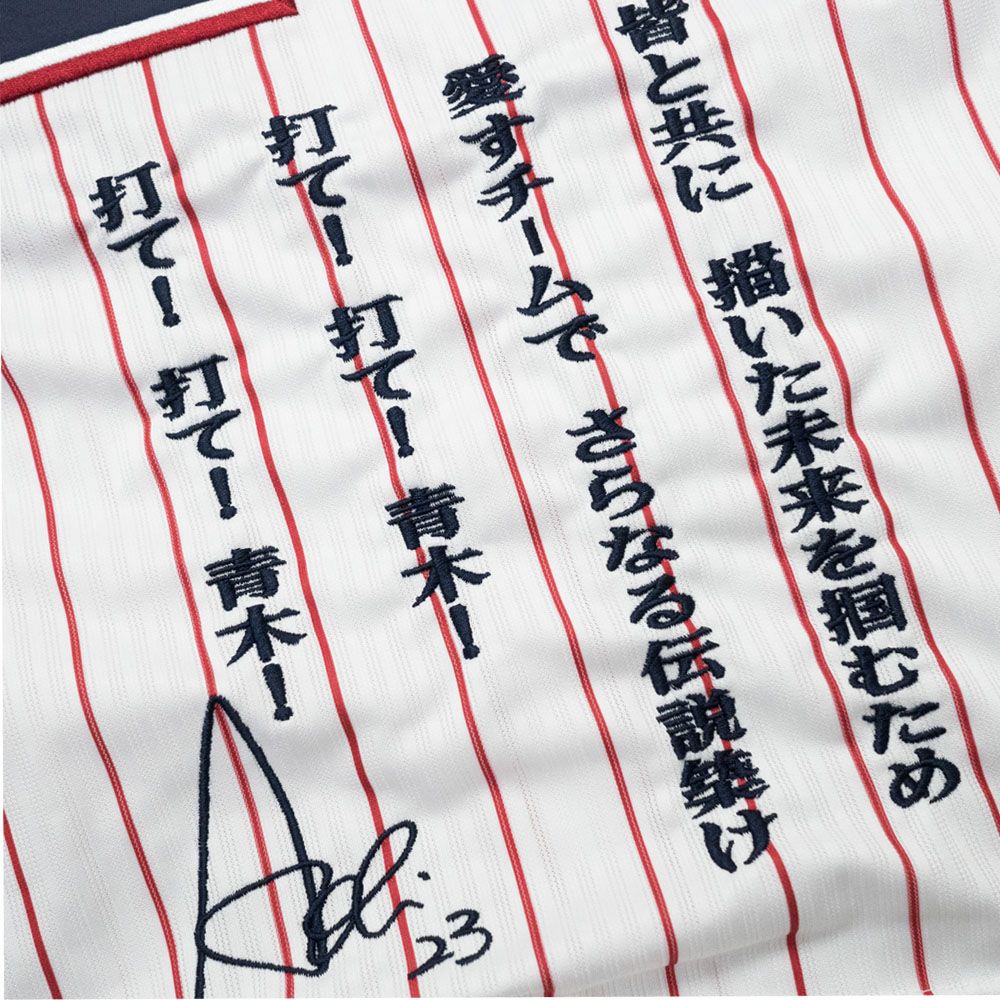 皆と共に 描いた未来を掴むため
愛すチームで さらなる伝説築け
打て! 打て! 青木!
打て! 打て! 青木!
Aoki 23